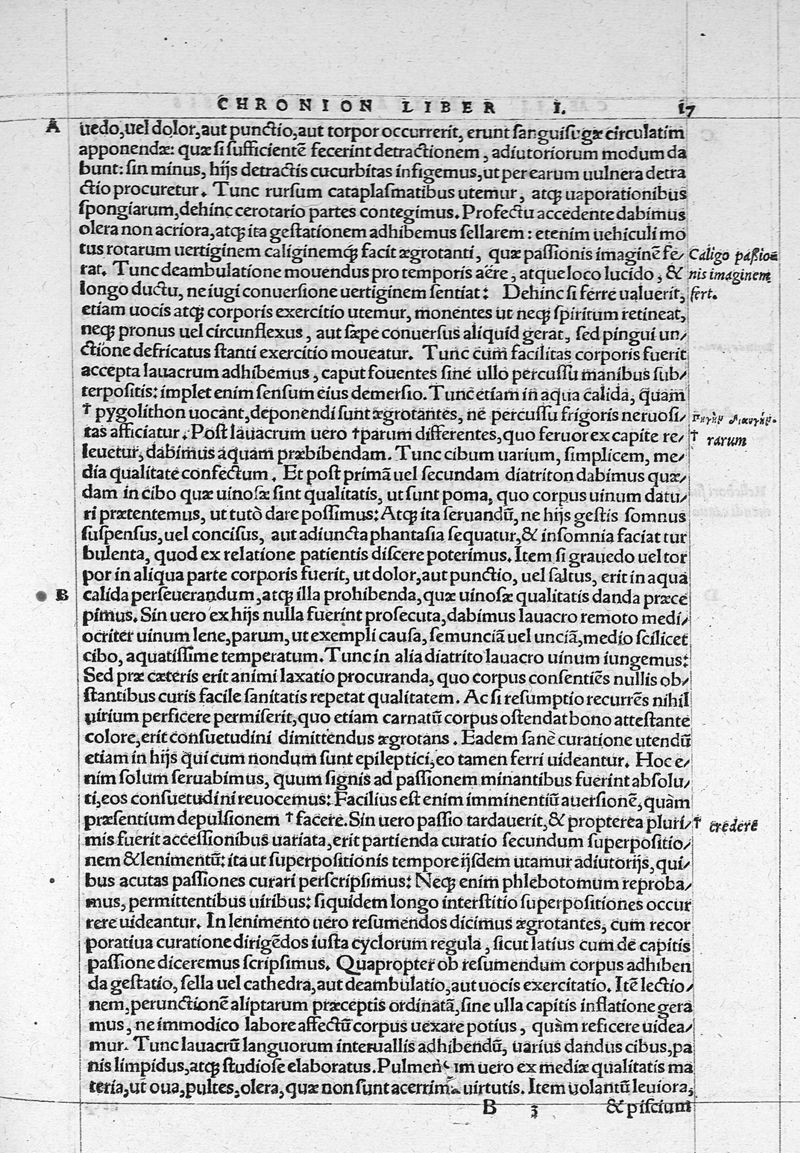 CHRONION LIBER I. 17
A
uedo, uel dolor, aut punctio, aut torpor occurrerit, erunt ſanguiſugæ circulatim
apponendæ: quæ ſi ſufficientē fecerint detractionem, adiutoriorum modum da
bunt: ſin minus, hijs detractis cucurbitas infigemus, ut per earum uulnera detra
ctio procuretur. Tunc rurſum cataplaſmatibus utemur, atq; uaporationibus
ſpongiarum, dehinc cerotario partes contegimus. Profectu accedente dabimus
olera non acriora, atq; ita geſtationem adhibemus ſellarem: etenim uehiculi mo
tus rotarum uertiginem caliginemq; facit ægrotanti, quæ paſſionis imaginē fe/
rat. Tunc deambulatione mouendus pro temporis aëre, atque loco lucido, &
longo ductu, ne iugi conuerſione uertiginem ſentiat: Dehinc ſi ferre ualuerit,
etiam uocis atq; corporis exercitio utemur, monentes ut neq; ſpiritum retineat,
neq; pronus uel circunflexus, aut ſæpe conuerſus aliquid gerat, ſed pingui un/
ctione defricatus ſtanti exercitio moueatur. Tunc cum facilitas corporis fuerit
accepta lauacrum adhibemus, caput fouentes ſine ullo percuſſu manibus ſub/
terpoſitis: implet enim ſenſum eius demerſio. Tunc etiam in aqua calida, quam
† pygolithon uocant, deponendi ſunt ægrotantes, ne percuſſu frigoris neruoſi/
tas afficiatur. Poſt lauacrum uero † parum differentes, quo feruor ex capite re/
leuetur, dabimus aquam præbibendam. Tunc cibum uarium, ſimplicem, me/
dia qualitate confectum. Et poſt primā uel ſecundam diatriton dabimus quæ/
dam in cibo quæ uinoſæ ſint qualitatis, ut ſunt poma, quo corpus uinum datu/
ri prætentemus, ut tutò dare poſſimus: Atq; ita ſeruandū, ne hijs geſtis ſomnus
ſuſpenſus, uel conciſus, aut adiuncta phantaſia ſequatur, & inſomnia faciat tur
bulenta, quod ex relatione patientis diſcere poterimus. Item ſi grauedo uel tor
por in aliqua parte corporis fuerit, ut dolor, aut punctio, uel ſaltus, erit in aqua
B
calida perſeuerandum, atq; illa prohibenda, quæ uinoſæ qualitatis danda præce
pimus. Sin uero ex hijs nulla fuerint proſecuta, dabimus lauacro remoto medi/
ocriter uinum lene, parum, ut exempli cauſa, ſemunciā uel unciā, medio ſcilicet
cibo, aquatiſſime temperatum. Tunc in alia diatrito lauacro uinum iungemus:
Sed præ cæteris erit animi laxatio procuranda, quo corpus conſentiēs nullis ob/
ſtantibus curis facile ſanitatis repetat qualitatem. Ac ſi reſumptio recurrēs nihil
uirium perficere permiſerit, quo etiam carnatū corpus oſtendat bono atteſtante
colore, erit conſuetudini dimittendus ægrotans. Eadem ſanè curatione utendū
etiam in hijs qui cum nondum ſunt epileptici, eo tamen ferri uideantur. Hoc e/
nim ſolum ſeruabimus, quum ſignis ad paſſionem minantibus fuerint abſolu/
ti, eos conſuetudini reuocemus: Facilius eſt enim imminentiū auerſionē, quàm
præſentium depulſionem † facere. Sin uero paſſio tardauerit, & propterea pluri/
mis fuerit acceſſionibus uariata, erit partienda curatio ſecundum ſuperpoſitio/
nem & lenimentū: ita ut ſuperpoſitionis tempore ijſdem utamur adiutorijs, qui/
bus acutas paſſiones curari perſcripſimus: Neq; enim phlebotomum reproba/
mus, permittentibus uiribus: ſiquidem longo interſtitio ſuperpoſitiones occur
rere uideantur. In lenimento uero reſumendos dicimus ægrotantes, cum recor
poratiua curatione dirigēdos iuſta cyclorum regula, ſicut latius cum de capitis
paſſione diceremus ſcripſimus. Quapropter ob reſumendum corpus adhiben
da geſtatio, ſella uel cathedra, aut deambulatio, aut uocis exercitatio. Itē lectio/
nem, perunctionē aliptarum præceptis ordinatā, ſine ulla capitis inflatione gera
mus, ne immodico labore affectū corpus uexare potius, quàm reficere uidea/
mur. Tunc lauacrū languorum interuallis adhibendū, uarius dandus cibus, pa
nis limpidus, atq; ſtudioſe elaboratus. Pulmen um uero ex mediæ qualitatis ma
teria, ut oua, pultes, olera, quæ non ſunt acerrimæ uirtutis. Item uolantū leuiora,
B 3 & piſcium
Caligo paſſio
nis imaginem
fert.
† rarum
† credere